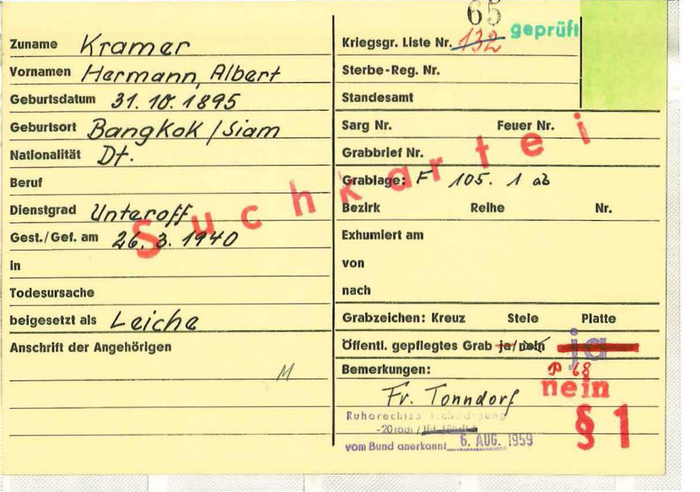 65
Kriegsgr. Liste Nr. 132 geprüft
Zuname Kramer
Vornamen Hermann, Albert
Geburtsdatum 31.10.1895
Geburtsort Bangkok / Siam
Nationalität Dt.
Beruf
Dienstgrad Unteroff.
Gest./Gef. am 26.3.1940
in
Todesursache
beigesetzt als Leiche
Anschrift der Angehörigen
M
Sterbe-Reg. Nr.
Standesamt
Sarg Nr. Feuer Nr.
Grabbrief Nr.
Grablage: F 105. 1 ab
Bezirk Reihe Nr.
Exhumiert am
von
nach
Grabzeichen: Kreuz Stele Platte
Öffentl. gepflegtes Grab ja/nein ja
Bemerkungen: 68
Fr. Tonndorf nein
§ 1
vom Bund anerkannt 6. AUG. 1959
Suchkartei